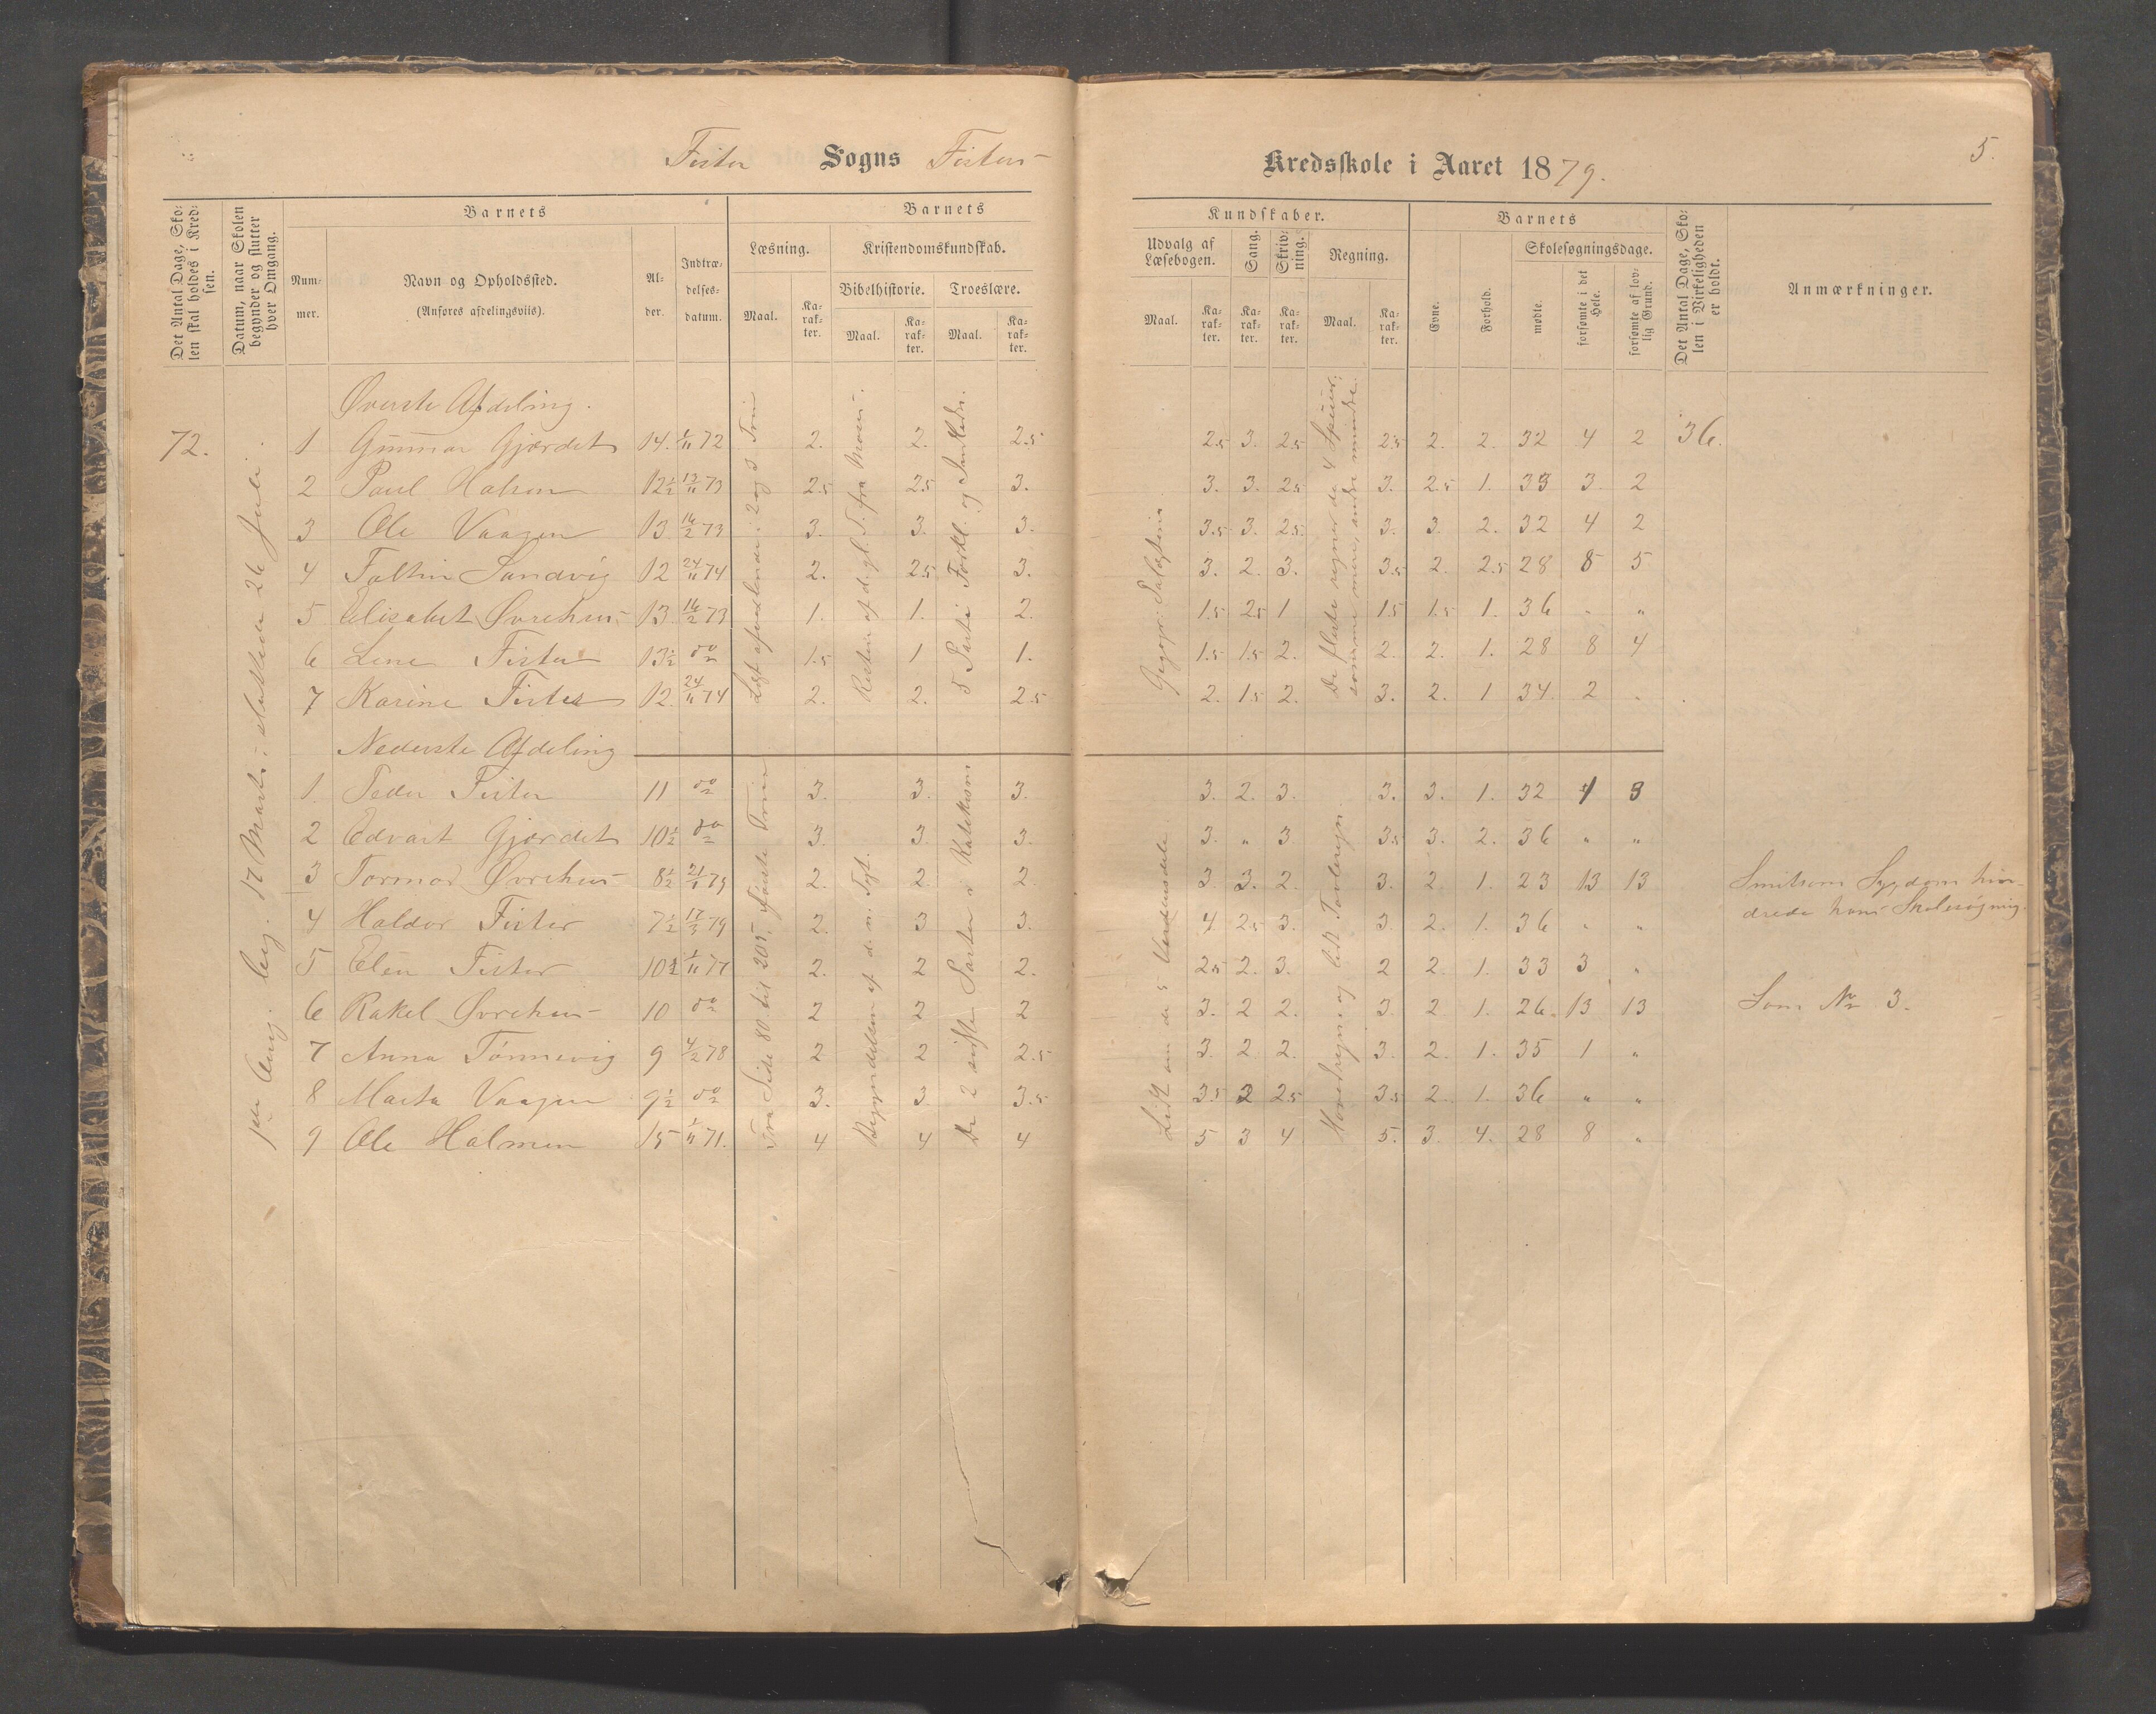 Fister Sogns Fisters
Kredsskole i Aaret 1879.
5.
Det Antal Dage, Skolen skal holdes i Kredsen.
Datum, naar Skolen begynder og slutter hver Omgang.
Barnets
Nummer.
Navn og Opholdssted.
(Anføres afdelingsviis).
Alder.
Indtrædelsesdatum.
Barnets
Læsning.
Maal.
Karakter.
Kristendomskundskab.
Bibelhistorie.
Maal.
Karakter.
Troeslære.
Maal.
Karakter.
Kundskaber.
Udvalg af Læsebogen.
Maal.
Karakter.
Sang.
Karakter.
Skrivning.
Karakter.
Regning.
Maal.
Karakter.
Barnets
Evne.
Forhold.
Skolesøgningsdage.
mødte.
forsømte i det Hele.
forsømte af lovlig Grund.
Det Antal Dage, Skolen i Virkeligheden er holdt.
Anmærkninger.
72.
1ste Omg. beg. 17 Marts; sluttede 26 Juli.
36.
Øverste Afdeling.
1 Gunnar Gjærdet 14. 1/11 72 2. 2. 2.5 2.5 3. 2.5 2.5 2. 2. 32 4 2
2 Paul Halsen 12½ 13/11 73 2.5 2.5 3. 3. 3. 2.5 3. 2.5 1. 33 3. 2
3 Ole Vaagen 13 16/2 73 3. 3. 3. 3.5 3. 2.5. 3. 3. 2. 32 4 2
4 Faltin Sandvig 12 24/11 74 2. 2.5 3. 3. 2. 3. 3.5 2. 2.5 28 8 5
5 Elisabet Øvrehus 13 16/2 73 1. 1. 2. 1.5 2.5 1 1.5 1.5 1. 36 " "
6 Line Fister 13½ do 1.5 1 1. 1.5 1.5 2. 2. 2. 1. 28 8 4
7 Karine Fister 12. 24/11 74 2. 2. 2.5 2. 1.5 2. 3. 2. 1 34. 2 "
Nederste Afdeling
1. Peder Fister 11 do 3. 3. 3. 3. 2. 3. 3. 3. 1. 32 4 3
2 Edvart Gjærdet 10½ do 3. 3. 3. 3. " 3. 3.5 3. 2. 36 " "
3 Tormod Øvrehus 8½ 21/1 79 2. 2. 2. 3. 3. 2. 3. 2. 1. 23 13 13 Smitsom Sygdom hindrede hans Skolesøgning.
4 Haldor Fister 7½ 17/3 79 2. 3 3. 4. 2.5 3. 3. 2. 1. 36 " "
5 Elen Fister 10½ 1/11 77 2. 2 2. 2.5 2. 3. 2 2 1. 33 3 "
6 Rakel Øvrehus 10 do 2 2 2 3. 2 2. 3. 2 1. 26. 13 13 Som No 3.
7 Anna Tønnevig 9 4/2 78 2 2 2.5 3. 2 2. 3. 2. 1. 35 1 "
8 Marta Vaagen 9½ do 3. 3. 3.5 3.5 2 2.5 3.5 2. 1. 36 " "
9 Ole Halmen 15 1/11 71. 4 4 4 5 3 4 5. 3. 4. 28 8 "
Læst afvexlende i 2 og 3 Trin
Resten af d. gl. T. fra Moses.
5 Parti Forkl. og
Geogr.
De fleste regner de 4 Spesier; somme mere, andre mindre.
Fra Side 80 til 205, første Trin
Begyndelsen af d. n. Test.
De 2 sidste Parter i Katekism
Lidt om de 5 Verdensdele
Hovedregn. og lidt Tavleregn.